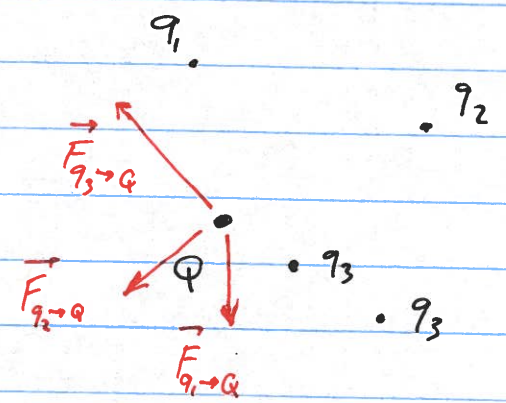 q₁
q₂
F⃗ q₃→Q
Q
q₃
F⃗ q₂→Q
q₃
F⃗ q₁→Q